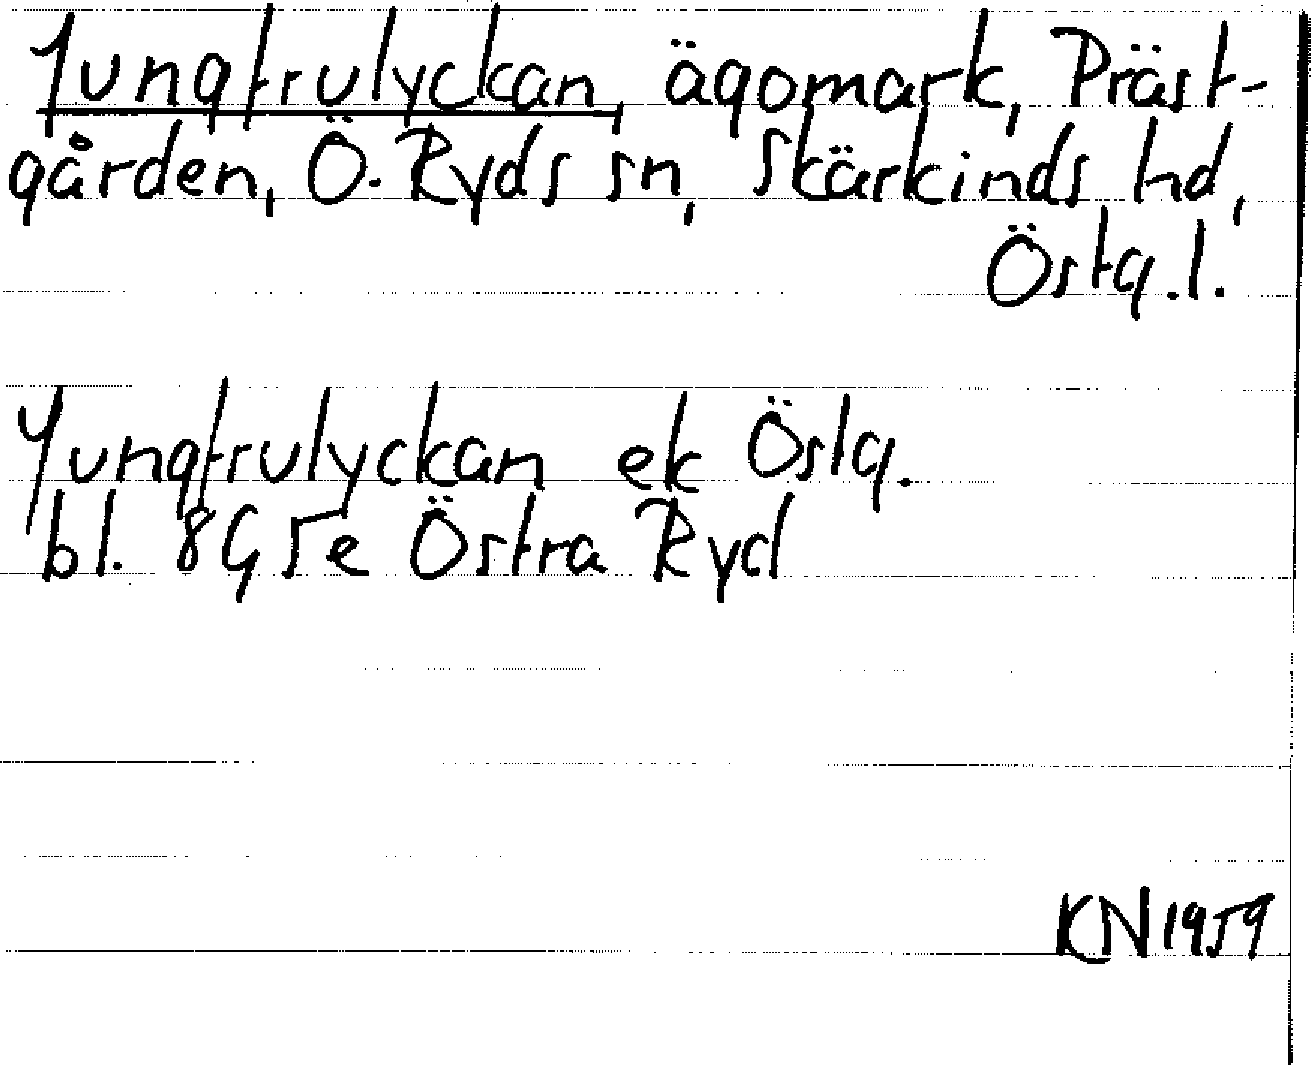 Jungfrulyckan, ägomark, Präst-
gården, Ö. Ryds sn, Skärkinds hd,
Östg. l.
Jungfrulyckan ek Östg.
bl. 8G 5e Östra Ryd
KN 1959